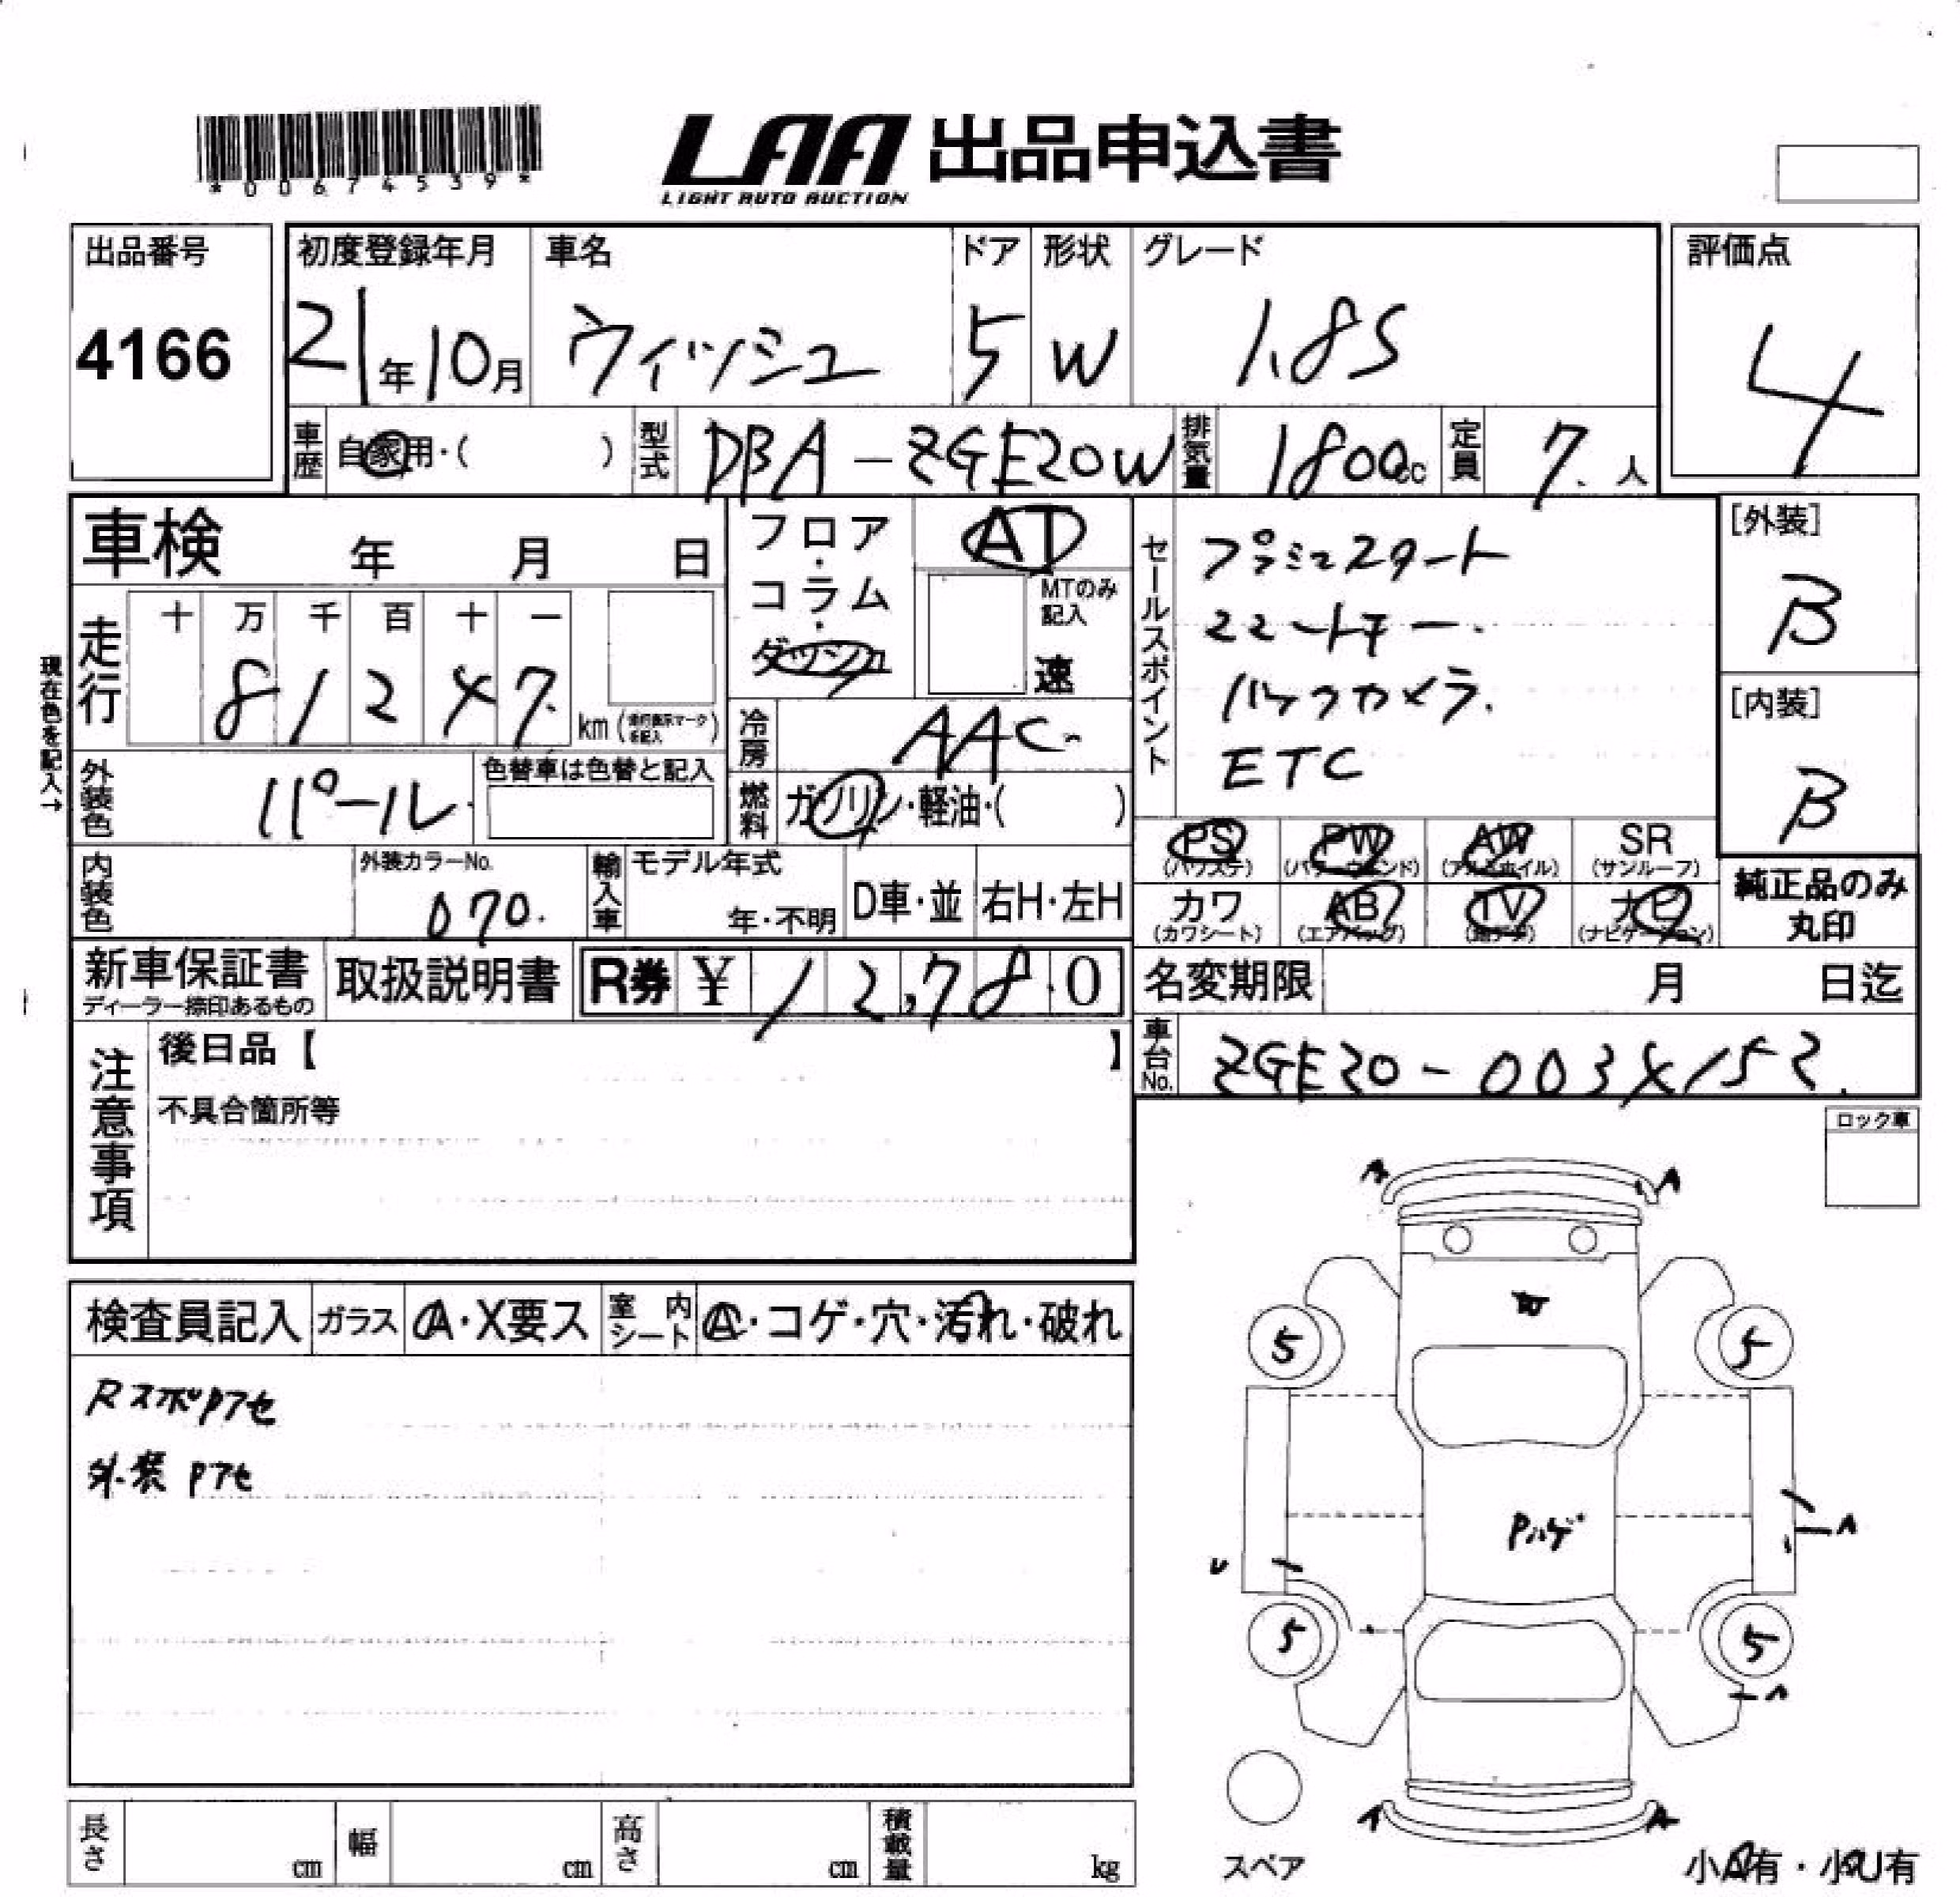 *00674539*
LAA 出品申込書
LIGHT AUTO AUCTION
出品番号
4166
初度登録年月
21年10月
車名
ウィッシュ
ドア
5
形状
W
グレード
1.8S
評価点
4
車歴
自家用・( )
型式
DBA-ZGE20W
排気量
1800cc
定員
7人
車検 年 月 日
走行
十 万 千 百 十 一
8 1 2 4 7
km
現在色を記入→
外装色
パール
色替車は色替と記入
フロア・コラム・ダッシュ
AT
MTのみ記入
速
冷房
AAC
燃料
ガソリン・軽油・( )
セールスポイント
プッシュスタート
スマートキー
バックカメラ.
ETC
[外装]
B
[内装]
B
内装色
外装カラーNo.
070.
輸入車
モデル年式
年・不明
D車・並
右H・左H
PS
(パワステ)
PW
(パワーウインド)
AW
(アルミホイル)
SR
(サンルーフ)
カワ
(カワシート)
AB
(エアバッグ)
TV
(地デジ)
ナビ
(ナビゲーション)
純正品のみ
丸印
新車保証書
ディーラー捺印あるもの
取扱説明書
R券 ¥ 12,780
名変期限 月 日迄
車台No.
ZGE20-0034152.
注意事項
後日品【 】
不具合箇所等
ロック車
検査員記入
ガラス
A・X要ス
室内シート
A・コゲ・穴・汚れ・破れ
RスポPアセ
外装Pアセ
A
A
5
5
Pハゲ
U
A
5
5
A
A
A
スペア
小A有・小U有
長さ cm
幅 cm
高さ cm
積載量 kg